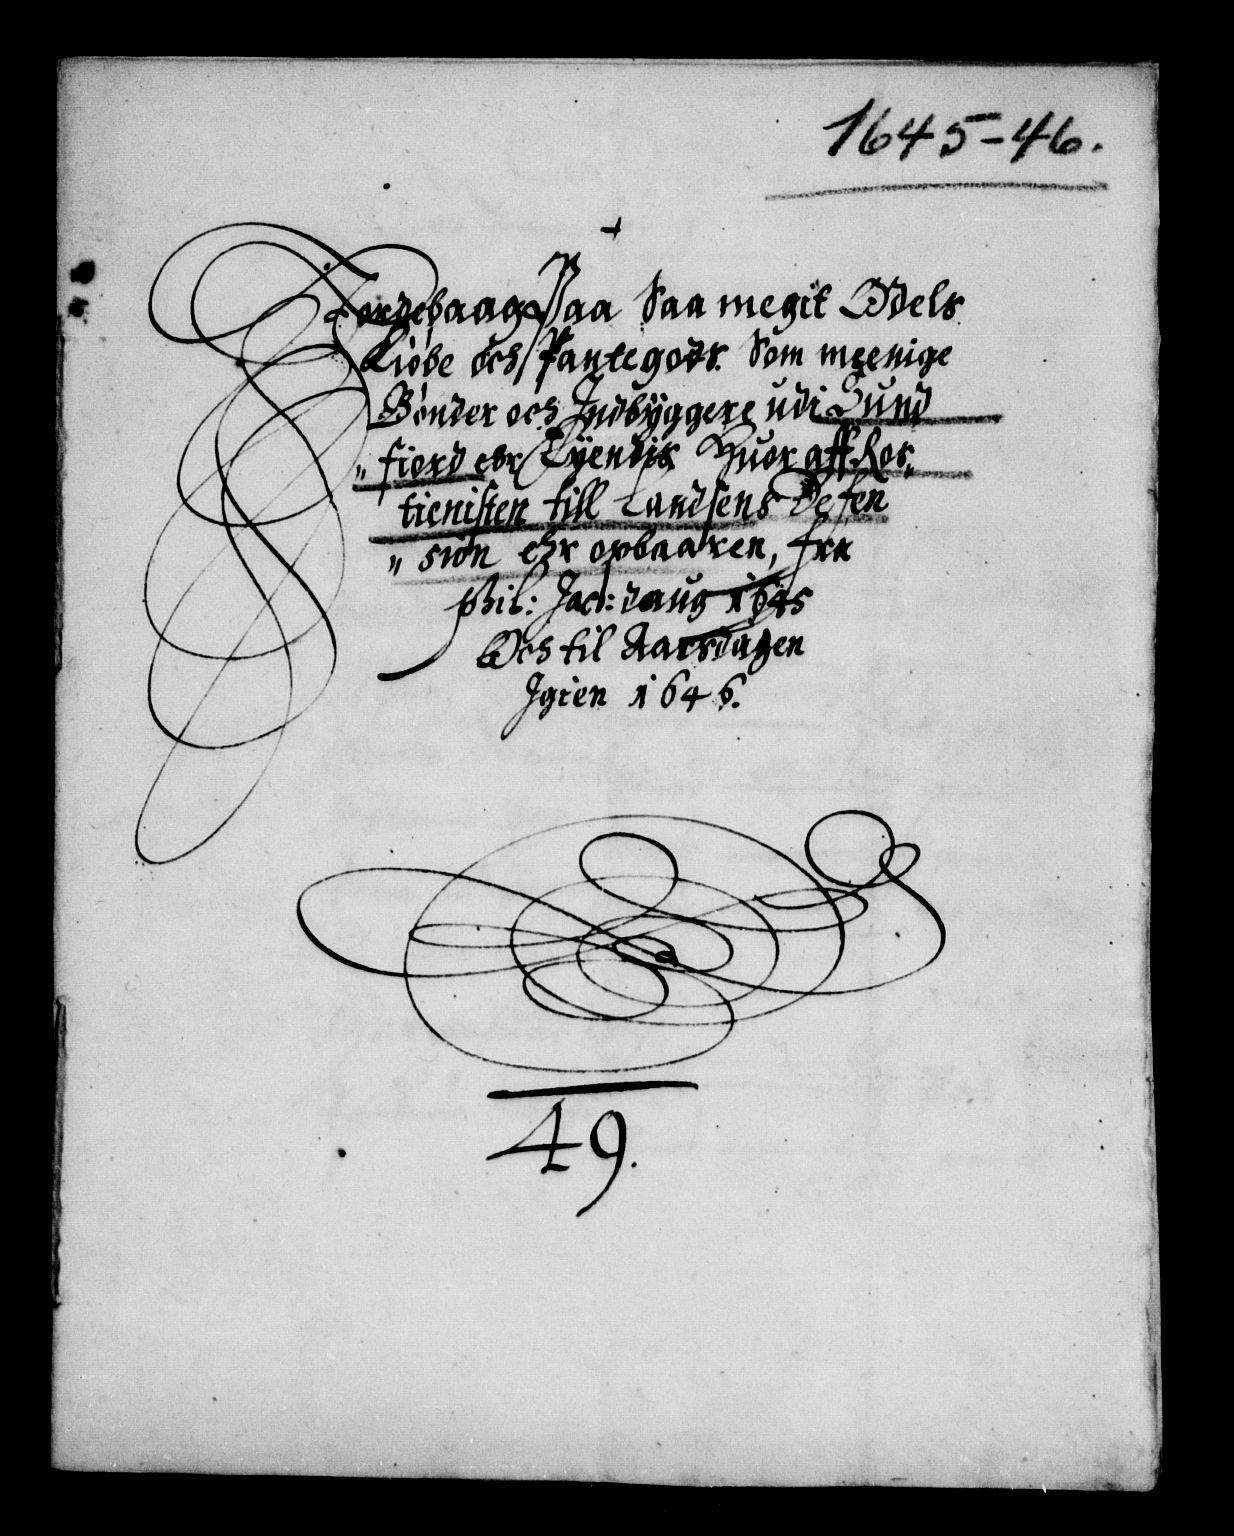 1645-46.
Jordebaag Paa Saa megit Odels
Kiøbe och Pantegods. Som meenige
Bønder och Indbÿggere udi Sund
„ fiord ehr Eÿendis Huor aff Ros„
tienisten till Landsens Defen
„ sion ehr opbaaren, fra
Phil: Jacobi daug 1645
Och til Aarsdagen
Igien 1646.
49.